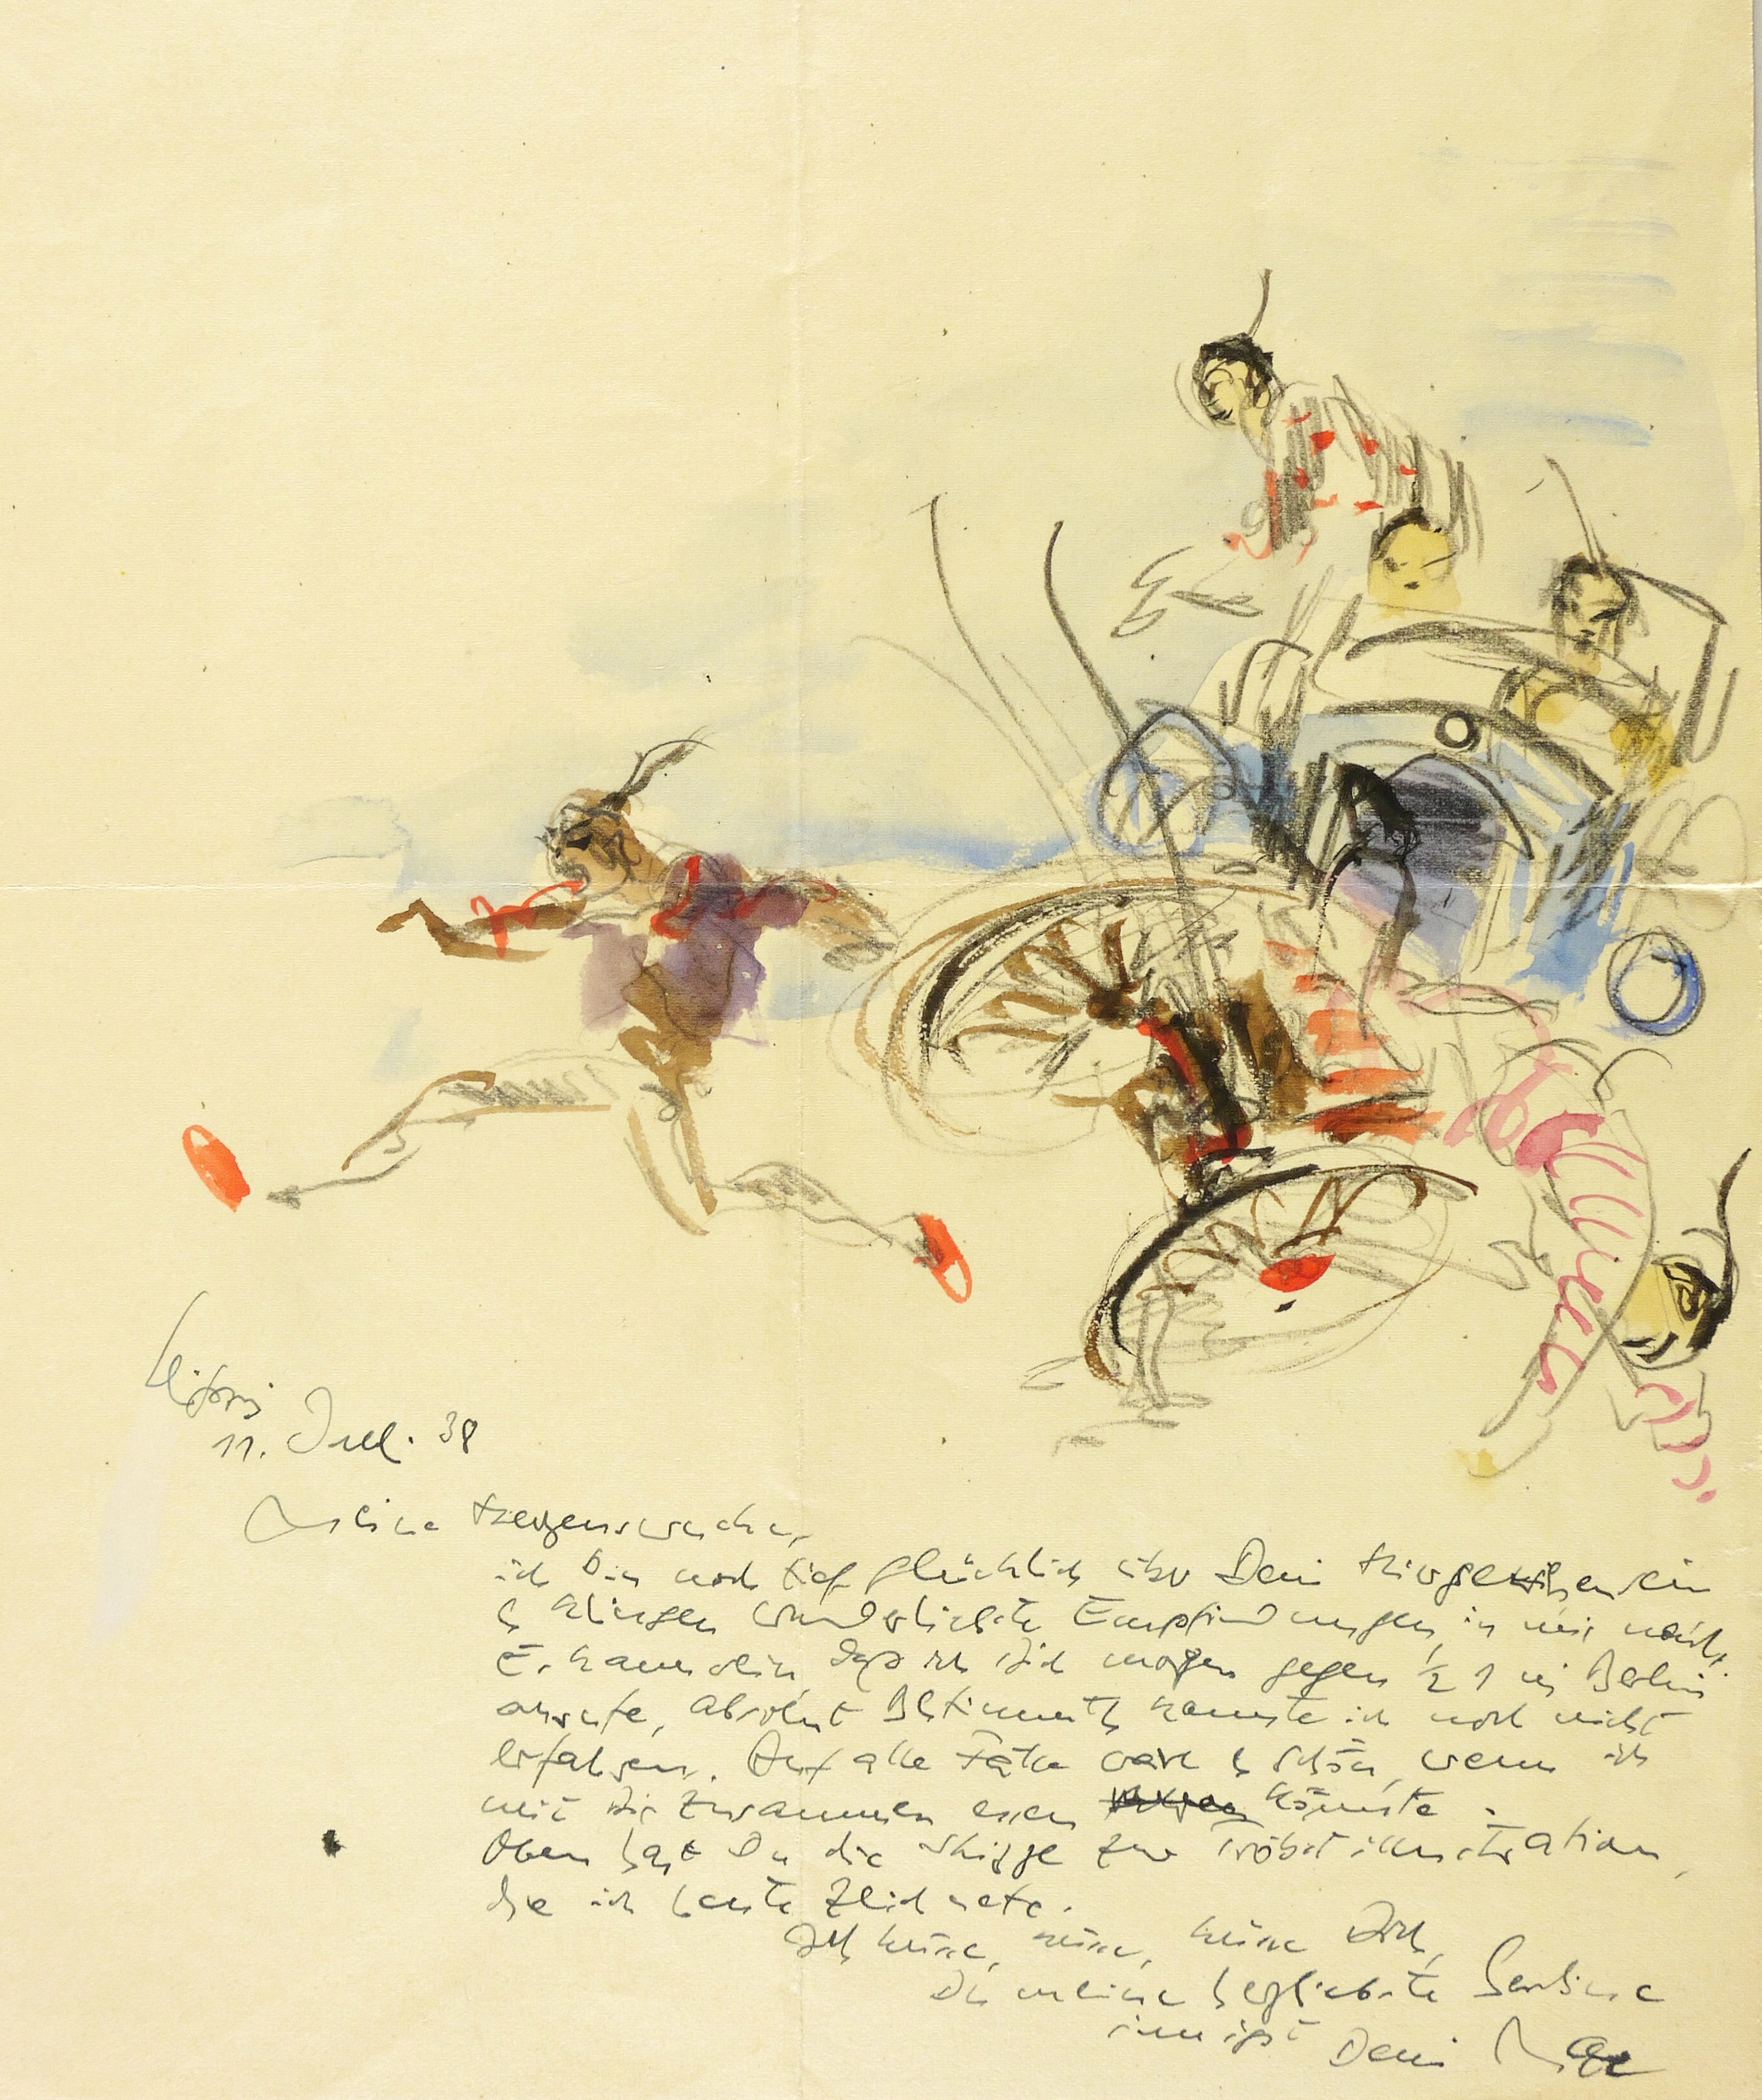 11. Juli. 38
Meine
ich bin noch tief glücklich über Dein Hiergewesensein
es klingen wunderlichste Empfindungen in mir nach.
Es kann sein, dass ich Dich morgen gegen ½ 1 in Berlin
anrufe, absolut Bestimmtes konnte ich noch nicht
erfahren. Auf alle Fälle wäre es schön, wenn ich
mit Dir zusammen essen könnte.
Oben hast Du die Skizze zur illustration,
die ich heute zeichnete.
Ich küsse, küsse, küsse Dich,
Du meine herzliebste
innigst Dein